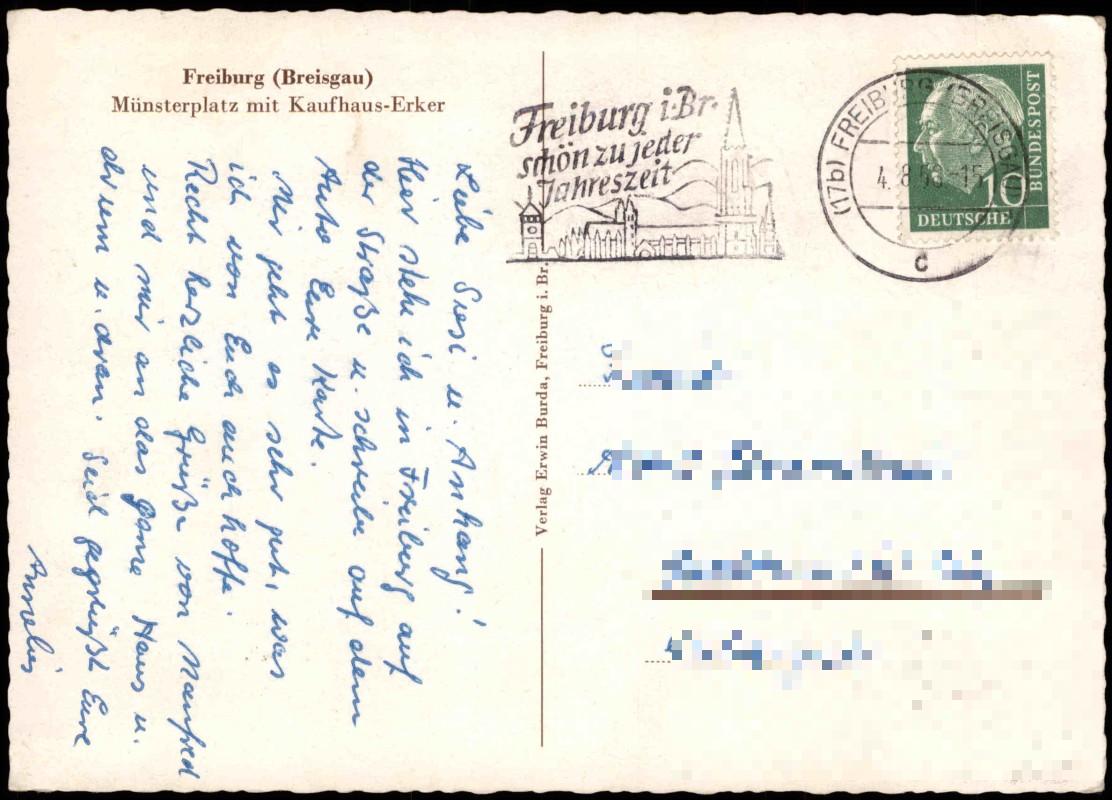 Freiburg (Breisgau)
Münsterplatz mit Kaufhaus-Erker
Liebe Susi u. Anhang!
Hier stehe ich in Freiburg auf
der Straße u. schreibe auf dem
Auto Eure Karte.
Mir geht es sehr gut, was
ich von Euch auch hoffe.
Recht herzliche Grüße von Manfred
und mir an das ganze Haus u.
drum u. dran. Seid gegrüßt Eure
Verlag Erwin Burda, Freiburg i. Br.
Freiburg i.Br.
schön zu jeder
Jahreszeit
(17b) FREIBURG (BREISGAU)
4.8.56-15
c
10
DEUTSCHE
BUNDESPOST